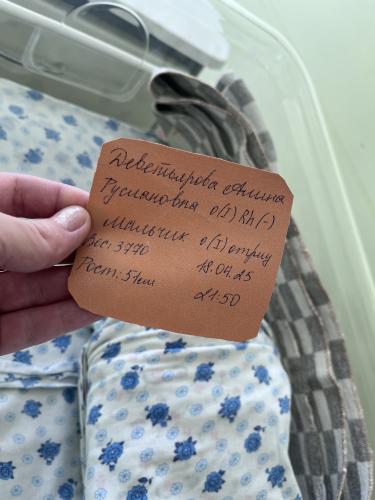 Деветьярова Алина
Руслановна 0(I) Rh(-)
Мальчик 0(I) отриц
Вес: 3770 18.04.25
Рост: 51см 21:50